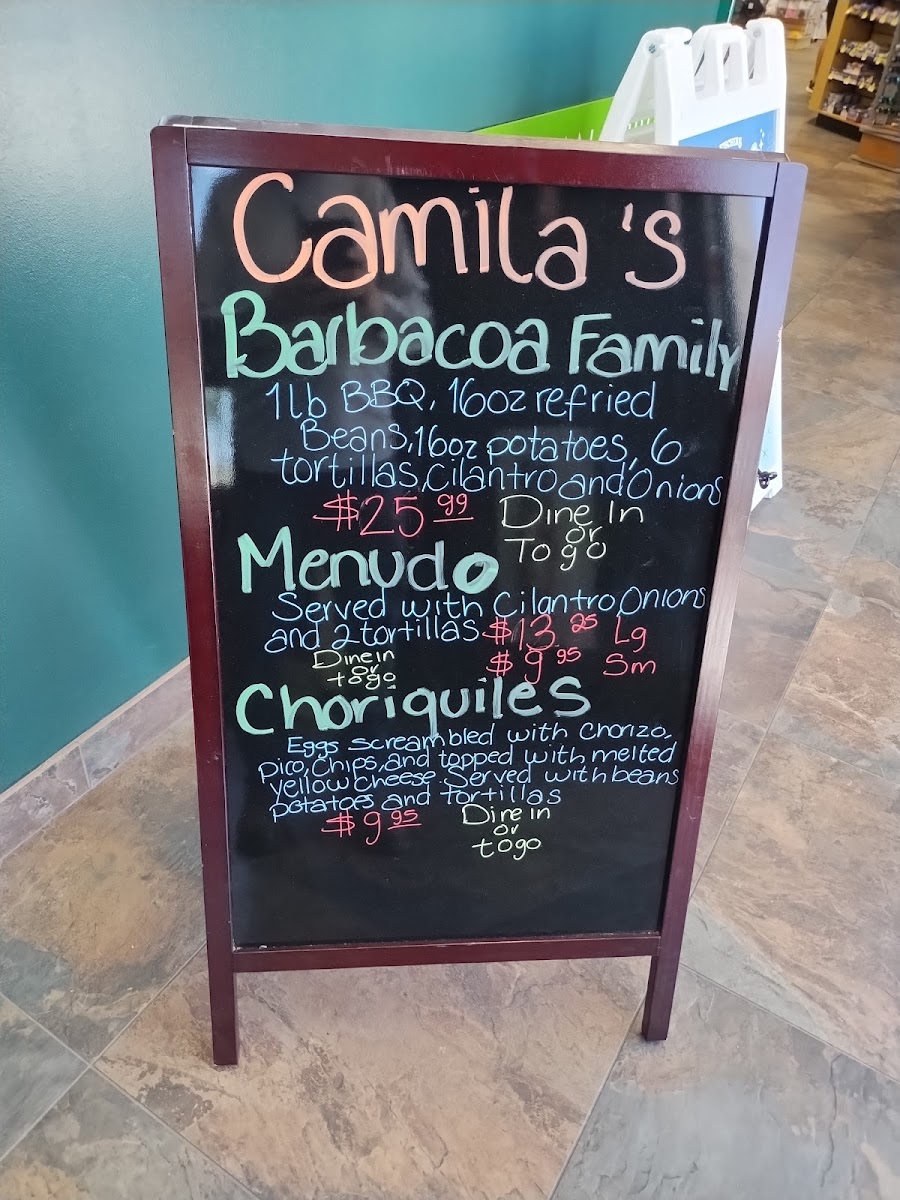 Camila's
Barbacoa Family
1lb BBQ, 16oz refried
Beans, 16oz potatoes, 6
tortillas, Cilantro and Onions
$25.99 Dine In
or
To go
Menudo
Served with Cilantro, Onions
and 2 tortillas $13.25 Lg
$9.95 Sm
Dine in
or
to go
Choriquiles
Eggs scrambled with chorizo,
pico, Chips, and topped with melted
yellow cheese. Served with beans
potatoes and tortillas
$9.95 Dine in
or
to go